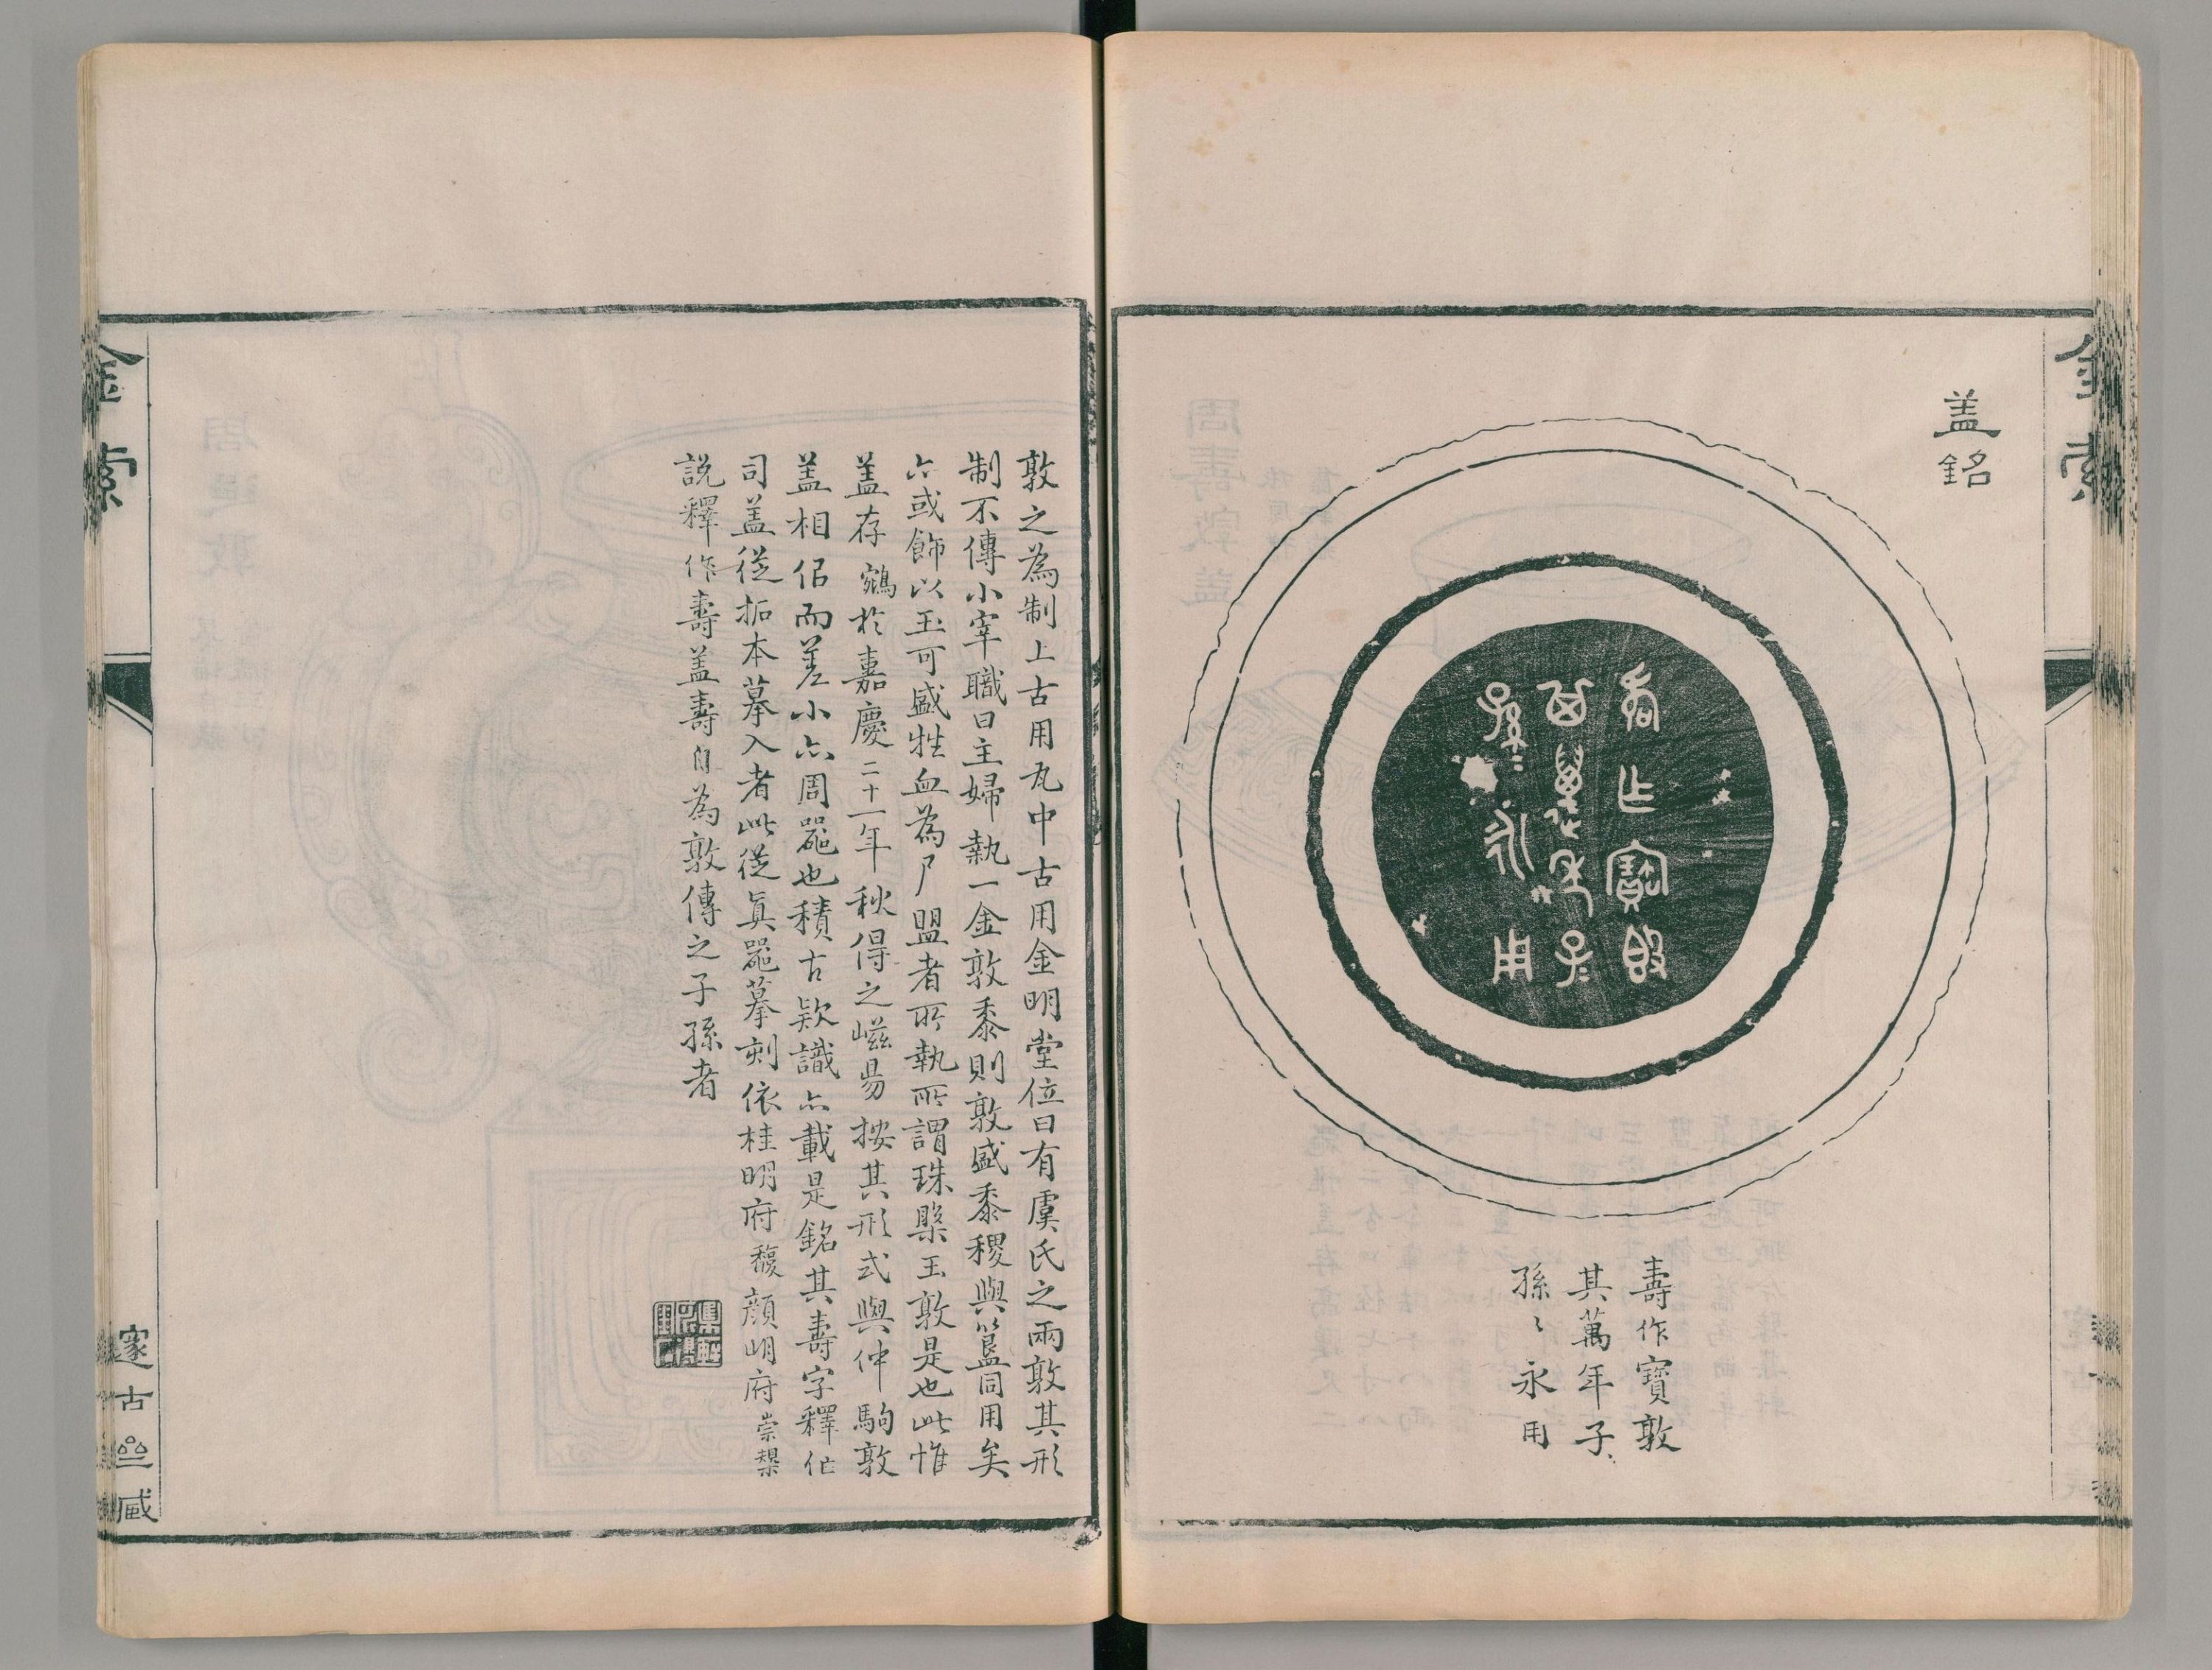 金索
蓋銘
壽作寶敦
其萬年子〻
孫〻永用
敦之為制上古用瓦中古用金明堂位曰有虞氏之兩敦其形
制不傳小宰職曰主婦執一金敦黍則敦盛黍稷與簠同用矣
亦或飾以玉可盛牲血為尸盟者所執所謂珠槃玉敦是也此惟
蓋存鵷於嘉慶二十一年秋得之嵫昜按其形式與仲駒敦
蓋相侶而差小亦周器也積古款識亦載是銘其壽字釋作
司蓋從拓本摹入者此從真器摹刻依桂明府馥顏明府崇槼
説釋作壽蓋壽自為敦傳之子孫者
金索
邃古
藏